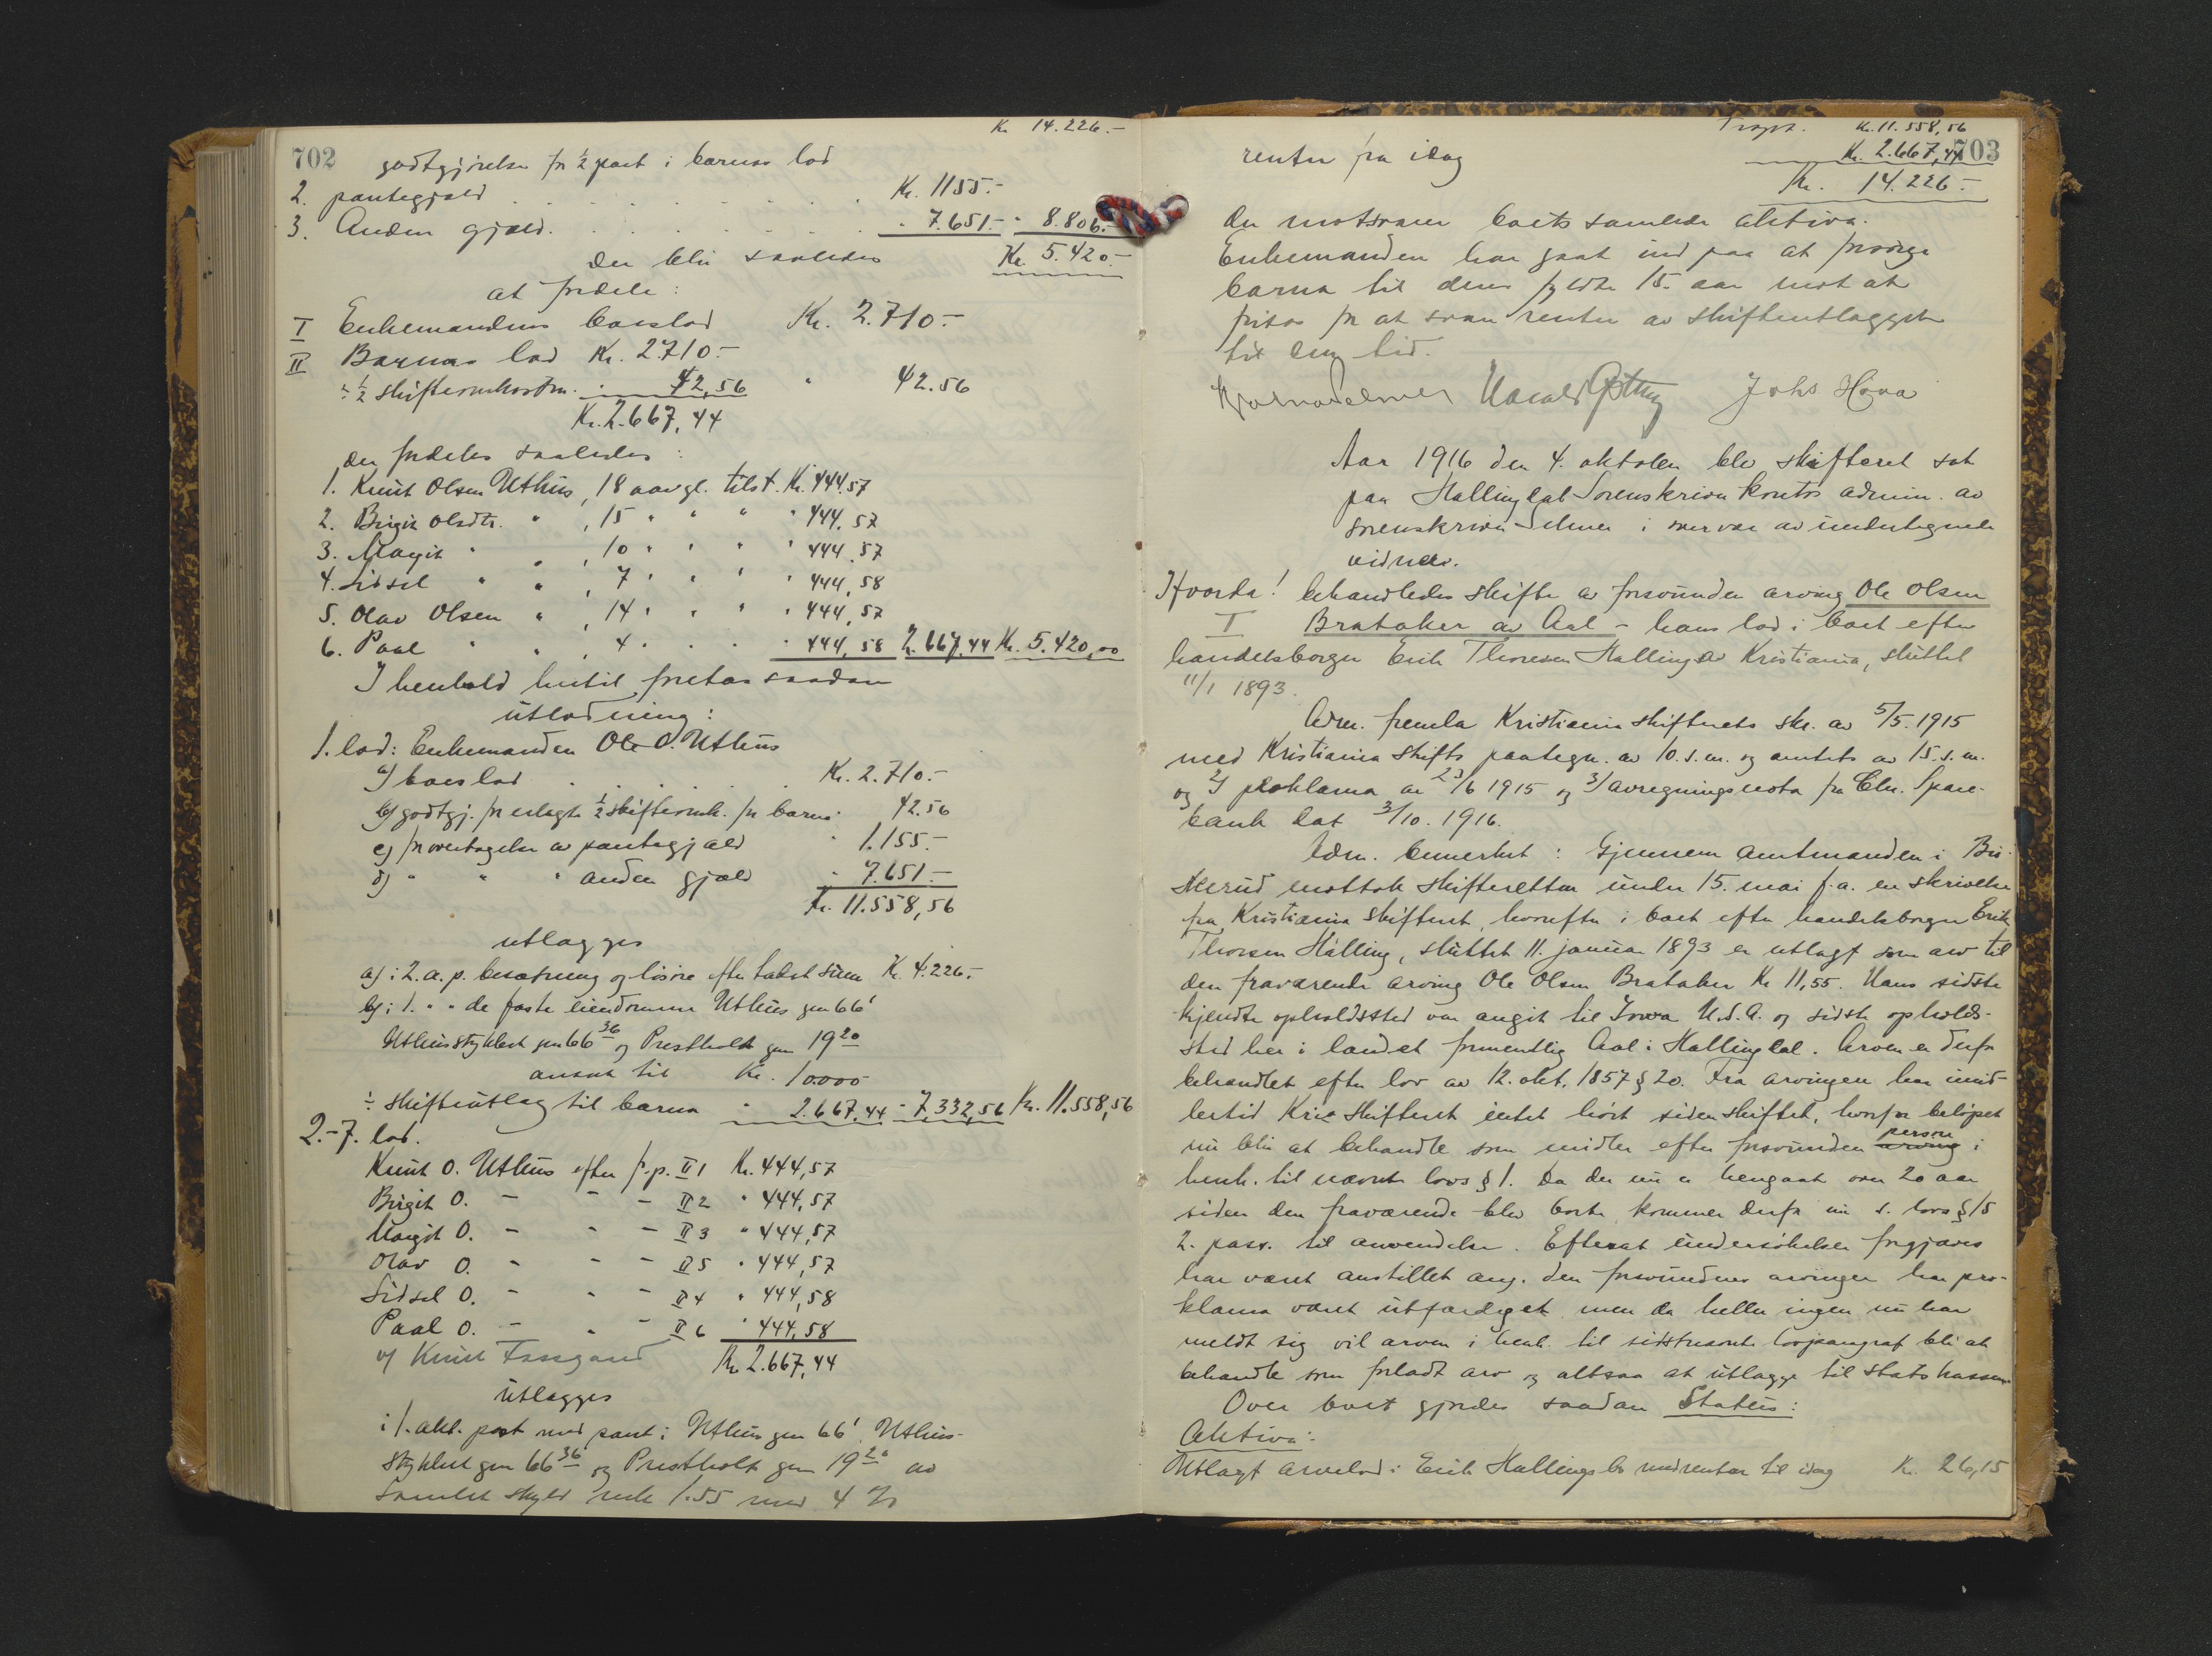 Kr. 14.226.-
702 godtgjörelse for ½ part i barnas lod
2. pantegjæld . . . . . . . . Kr. 1155.-
3. Anden gjæld. . . . . . . . " 7.651.- " 8.806.-
der blir saaledes Kr. 5.420.-
at fordele:
I Enkemandens boeslod Kr. 2.710.-
II Barnas lod Kr. 2.710.-
÷ ½ skifteomkostn. " 42,56 " 42.56
Kr. 2.667,44
der fordeles saaledes:
1. Knut Olsen Uthus, 18 aar gl. tilst. Kr. 444.57
2. Birgit Olsdtr. " , 15 " " " " 444.57
3. Margit " " , 10 " " " " 444.57
4. Sidsel " " , 7 " " " " 444,58
5. Olav Olsen " , 14 " " " " 444,57
6. Paal " " , 4 " " " " 444,58 2.667,44 Kr. 5.420,00
I henhold hertil foretas saadan
utlodning:
1. lod: Enkemanden Ole O. Uthus
a) boeslod . . . . . Kr. 2.710.-
b) godtgj. for erlagte ½ skifteomk. for barna " 42.56
c) for overtagelse av pantegjæld " 1.155.-
d) " " " anden gjæld " 7.651.-
Kr. 11.558,56
utlægges
a) i 2. a. p. besætning og lösöre efter takst sum Kr. 4.226.-
b) i 1. " " de faste eiendomme Uthus gnr 66¹
Uthusstykket gnr 66 36 og Prestholt gnr 19 20
ansat til Kr. 10.000
÷ skifteutlæg til barna " 2.667,44 " 7.332,56 Kr. 11.558,56
2.-7. lod.
Knut O. Uthus efter f.p. II 1 Kr. 444,57
Birgit O. - - - II 2 " 444,57
Margit O. - - - II 3 " 444,57
Olav O. - - - II 5 " 444,57
Sidsel O. - - - II 4 " 444,58
Paal O. - - - II 6 " 444,58
v/ Knut Kr. 2.667,44
utlægges
i 1. akt. post med pant i Uthus gnr 66¹ Uthus-
stykket gnr 66 36 og Prestholt gnr 19 20 av
samlet skyld mrk 1.55 med 4 %
Transp. Kr. 11.558,56
renter fra idag Kr. 2.667,44 703
Kr. 14.226.-
der motsvarer boets samlede aktiva.
Enkemanden har gaat ind paa at forsörge
barna til deres fyldte 15. aar mot at
fritas for at svare renter av skifteutlægget
til den tid.
Johs Hova
Aar 1916 den 4. oktober blev skifteret sat
paa Hallingdal Sorenskriver kontor admin. av
sorenskriver Selmer i nærvær av undertegnede
vidner.
Hvorda! behandledes skifte av forsvunden arving Ole Olsen
I Brataker av Aal - hans lod i boet efter
handelsborger Erik Thoresen Halling av Kristiania, sluttet
11/1 1893.
Adm. fremla Kristiania skifterets skr. av 5/5. 1915
med Kristiania Stifts paategn. av 10. s.m. og amtets av 15. s.m.
og 2) proklama av 23/6 1915 og 3) avregningsnota fra Spare-
bank dat 3/10. 1916.
Adm. bemerket: Gjennem Amtmanden i Bu-
skerud mottok skifteretten under 15. mai f.a. en skrivelse
fra Kristiania skifteret, hvorefter i boet efter handelsborger Erik
Thoresen Halling, sluttet 11. januar 1893 er utlagt som arv til
den fraværende arving Ole Olsen Brataker Kr 11,55. Hans sidste
kjendte opholdssted var angit til Iowa U.S.A. og sidste opholds-
sted her i landet formentlig Aal i Hallingdal. Arven er derfor
behandlet efter lov av 12. okt. 1857 § 20. Fra arvingen har imid-
lertid Kria Skifteret intet hört siden skiftet, hvorfor belöpet
nu blir at behandle som midler efter forsvunden arving person i
henh. til nævnte lovs § 1. Da der nu er hengaat over 20 aar
siden den fraværende blev borte kommer derfor nu s. lovs § 15
2. pass. til anvendelse. Efterat undersökelser forgjæves
har været anstillet ang. den forsvundnes arvinger har pro-
klama været utfærdiget men da heller ingen nu har
meldt sig vil arven i henh. til sidstnævnte lovparagraf bli at
behandle som forladt arv og altsaa at utlægge til Statskassen.
Over boet gjordes saadan Status:
Aktiva:
Utlagt arvelod i Erik Hallings bo med renter til idag Kr. 26,15